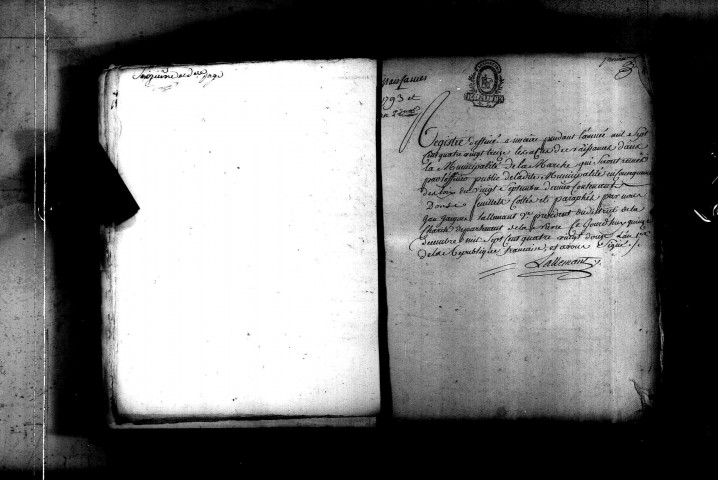 page
Naissances
1793 et
an 2
Registre destiné a inscrire pendant l'année mil sept
cent quatre vingt treize les actes de naissances dans
la Municipalité de la Marche qui seront remis
par l'officier public de ladite Municipalité en consequence
des loix du vingt septembre dernier Contenant
Douze feuillets Cottés et paraphés par nous
Jean Jacques Lallemant president du district de la
Charité departement de la Nievre Ce Jourd'hui quinze
decembre mil sept cent quatre vingt douze L'an 1er
de la Republique francaise, et avons signé
Lallemant